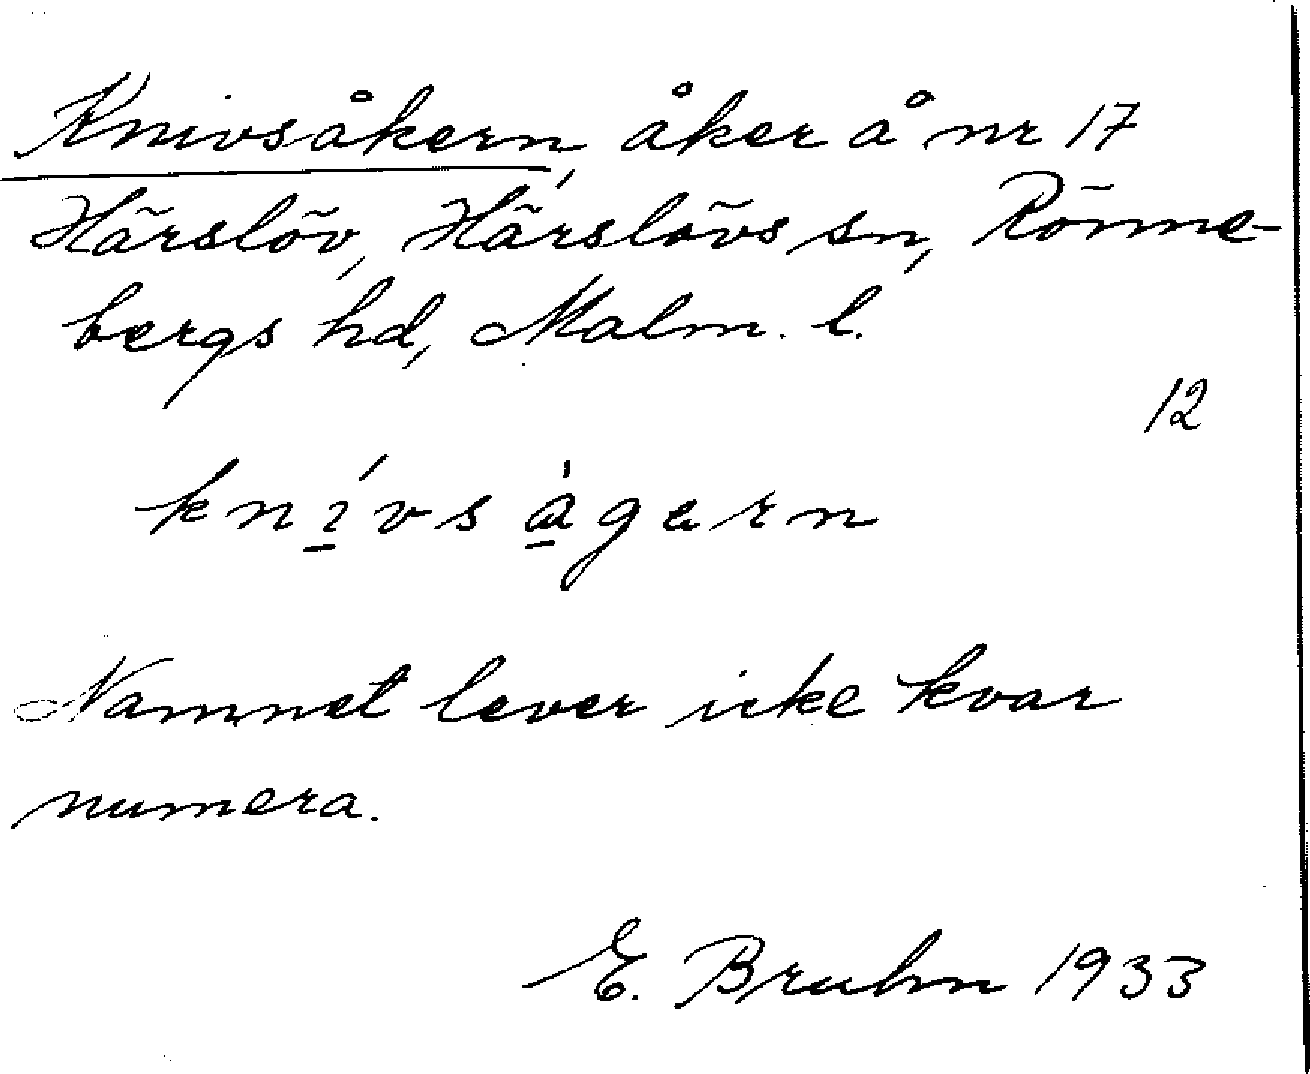 Knivsåkern, åker å nr 17
Härslöv, Härslövs sn, Rönne-
bergs hd, Malm. l.
12
Namnet lever icke kvar
numera.
E. Bruhn 1933